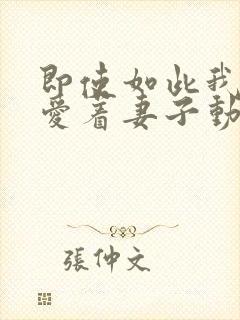 即使如此我
愛着妻子動
張仲文